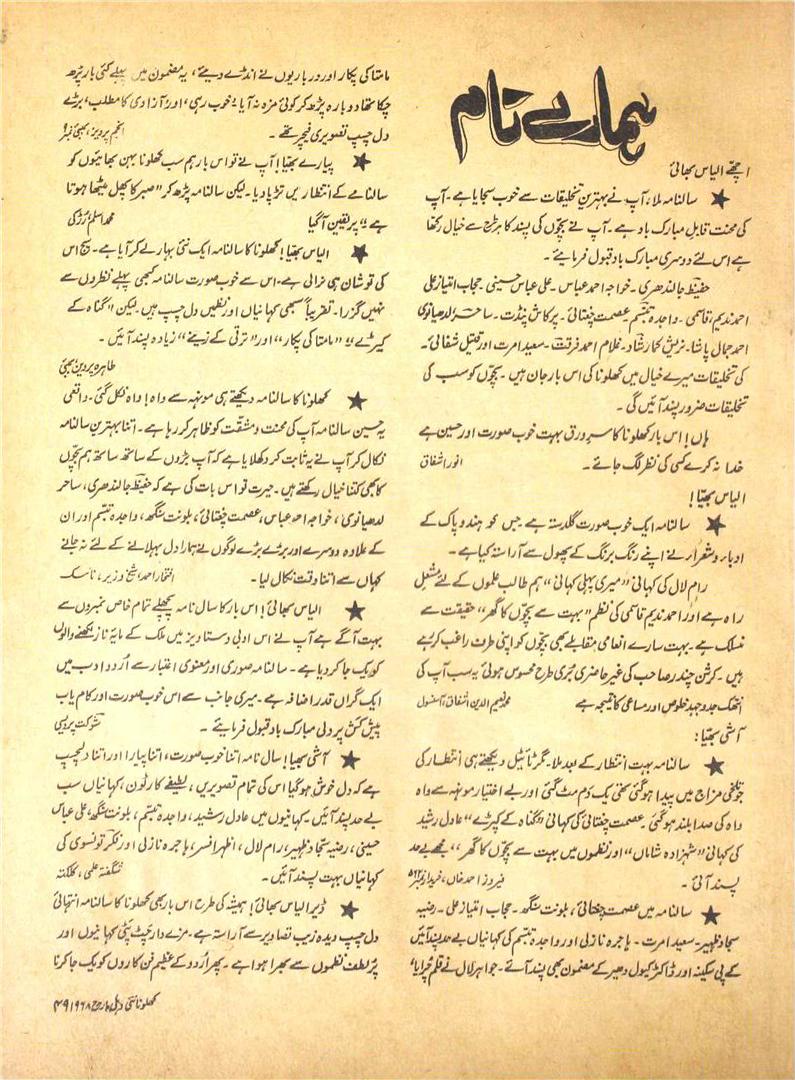 ہمارے نام
اچھے الیاس بھائی
★ سالنامہ ملا، آپ نے بہترین تخلیقات سے خوب سجایا ہے۔ آپ
کی محنت قابلِ مبارک باد ہے۔ آپ نے بچّوں کی پسند کا ہر طرح سے خیال رکھا
ہے اس لئے دوسری مبارک باد قبول فرمایئے۔
حفیظ جالندھری۔ خواجہ احمد عباس۔ علی عباس حسینی۔ حجاب امتیاز علی
احمد ندیم قاسمی۔ واجدہ تبسّم۔ عصمت چغتائی۔ پرکاش پنڈت۔ ساحر لدھیانوی
احمد جمال پاشا۔ نریش کمار شاد۔ غلام احمد فرقت۔ سعید امرت اور قتیل شفائی۔
کی تخلیقات میرے خیال میں کھلونا کی اس بار جان ہیں۔ بچّوں کو سب کی
تخلیقات ضرور پسند آئیں گی۔
ہاں! اس بار کھلونا کا سرورق بہت خوب صورت اور حسین ہے
خدا نہ کرے کسی کی نظر لگ جائے۔ انور اشفاق
الیاس بھیّا!
★ سالنامہ ایک خوب صورت گلدستہ ہے جس کو ہندو پاک کے
ادباء و شعراء نے اپنے رنگ برنگ کے پھول سے آراستہ کیا ہے۔
رام لال کی کہانی "میری پہلی کہانی" ہم طالب علموں کے لئے مشعلِ
راہ ہے اور احمد ندیم قاسمی کی نظم "بہت سے بچّوں کا گھر" حقیقت سے
منسلک ہے۔ بہت سارے انعامی مقابلے بھی بچّوں کو اپنی طرف راغب کر رہے
ہیں۔ کرشن چندر صاحب کی غیر حاضری بُری طرح محسوس ہوئی یہ سب آپ کی
انتھک جدوجہد خلوص اور مساعی کا نتیجہ ہے محمد نعیم الدین اشفاق، آسنسول
آشی بھیّا:
★ سالنامہ بہت انتظار کے بعد ملا۔ مگر ٹائیٹل دیکھتے ہی انتظار کی
جو تلخی مزاج میں پیدا ہوگئی تھی یک دم مٹ گئی اور بے اختیار مونہہ سے واہ
واہ کی صدا بلند ہوگئی۔ عصمت چغتائی کی کہانی "گناہ کے کیڑے" عادل رشید
کی کہانی "شہزادہ شاماں" اور نظموں میں بہت سے بچّوں کا گھر" مجھے بے حد
پسند آئی۔ فیروز احمد خاں، خریدار نمبر
★ سالنامہ میں عصمت چغتائی، بلونت سنگھ۔ حجاب امتیاز علی۔ رضیہ
سجاد ظہیر۔ سعید امرت۔ ہاجرہ نازلی اور واجدہ تبسّم کی کہانیاں بے حد پسند آئیں
کے پی سکینہ اور ڈاکٹر کیول دھیر کے مضمون بھی پسند آئے۔ جواہر لال نے قلم چُرایا،
مامتا کی پکار اور درباریوں نے انڈے دیئے، یہ مضمون میں پہلے کئی بار پڑھ
چکا تھا دوبارہ پڑھ کر کوئی مزہ نہ آیا، خوب رہی، اور آزادی کا مطلب، بڑے
دل چسپ تصویری فیچر تھے۔ انجم پرویز، بمبئی نمبر ۹
★ پیارے بھیّا! آپ نے تو اس بار ہم سب کھلونا بہن بھائیوں کو
سالنامے کے انتظار میں تڑپا دیا۔ لیکن سالنامہ پڑھ کر "صبر کا پھل میٹھا ہوتا
ہے" پر یقین آگیا محمد اسلم رڑکی
★ الیاس بھیّا! کھلونا کا سالنامہ ایک نئی بہار لے کر آیا ہے۔ سچ اس
کی تو شان ہی نرالی ہے۔ اس سے خوب صورت سالنامہ کبھی پہلے نظروں سے
نہیں گزرا۔ تقریباً سبھی کہانیاں اور نظمیں دل چسپ ہیں۔ لیکن "گناہ کے
کیڑے" "مامتا کی پکار" اور "ترقی کے زینے" زیادہ پسند آئیں۔
طاہرہ پروین بمبئی
★ کھلونا کا سالنامہ دیکھتے ہی مونہہ سے واہ! واہ نکل گئی۔ واقعی
یہ حسین سالنامہ آپ کی محنت و مشقت کو ظاہر کر رہا ہے۔ اتنا بہترین سالنامہ
نکال کر آپ نے یہ ثابت کر دکھلایا ہے کہ آپ بڑوں کے ساتھ ساتھ ہم بچّوں
کا بھی کتنا خیال رکھتے ہیں۔ حیرت تو اس بات کی ہے کہ حفیظ جالندھری، ساحر
لدھیانوی، خواجہ احمد عباس، عصمت چغتائی، بلونت سنگھ، واجدہ تبسّم اور ان
کے علاوہ دوسرے اور بڑے بڑے لوگوں نے ہمارا دل بہلانے کے لئے نہ جانے
کہاں سے اتنا وقت نکال لیا۔ افتخار احمد، شیخ وزیر، ناسک
★ الیاس بھائی! اس بار کا سال نامہ پچھلے تمام خاص نمبروں سے
بہت آگے ہے آپ نے اس ادبی دستاویز میں ملک کے مایۂ ناز لکھنے والوں
کو یک جا کر دیا ہے۔ سالنامہ صوری اور معنوی اعتبار سے اُردو ادب میں
ایک گراں قدر اضافہ ہے۔ میری جانب سے اس خوب صورت اور کام یاب
پیش کش پر دلی مبارک باد قبول فرمایئے۔ شوکت پردیسی
★ آشی بھیا! سال نامہ اتنا خوب صورت، اتنا پیارا اور اتنا دلچسپ
ہے کہ دل خوش ہوگیا اس کی تمام تصویریں، لطیفے کارٹون، کہانیاں سب
بے حد پسند آئیں۔ کہانیوں میں عادل رشید، واجدہ تبسّم، بلونت سنگھ، علی عباس
حسینی، رضیہ سجاد ظہیر، رام لال، اظہر افسر، ہاجرہ نازلی اور فکر تونسوی کی
کہانیاں بہت پسند آئیں۔ شگفتہ علمی، کلکتہ
★ ڈیر الیاس بھائی! ہمیشہ کی طرح اس بار بھی کھلونا کا سالنامہ انتہائی
دل چسپ دیدہ زیب تصاویر سے آراستہ ہے۔ مزے دار چٹ پٹی کہانیوں اور
پُر لطف نظموں سے بھرا ہوا ہے۔ پھر اُردو کے عظیم فن کاروں کو یک جا کرنا
کھلونا نئی دہلی مارچ ۱۹۶۸ ۴۹